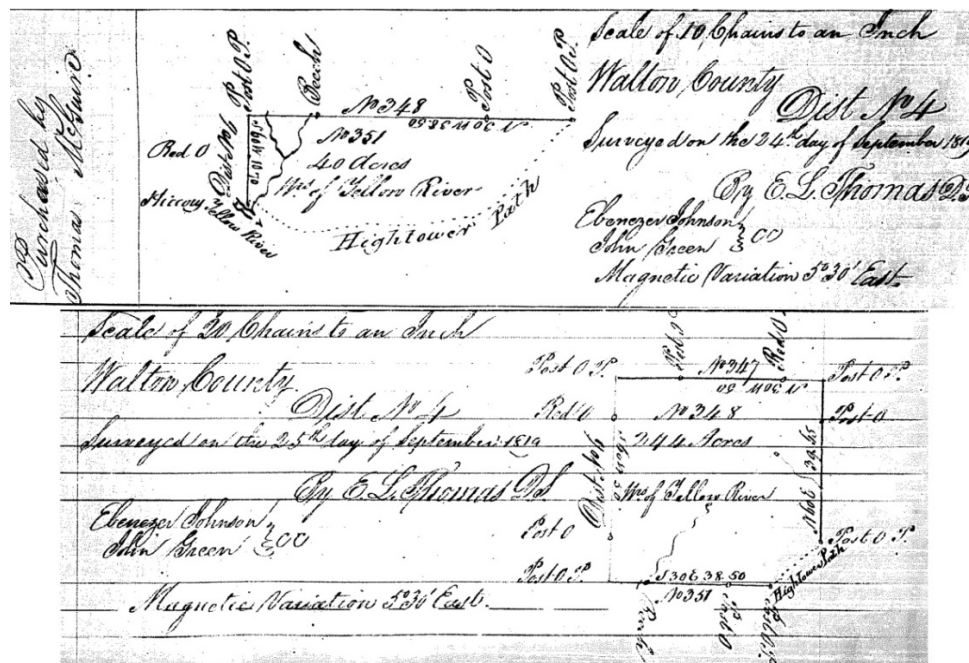 Purchased by
Thomas McGuire
Post O.P.
Beech
Post O
Post O.P.
No 348
N 30 W 38 50
Red O
Dist No
No 351
40 Acres
Wrs of Yellow River
Hickory
Yellow River
Hightower Path
Scale of 10 Chains to an Inch
Walton County
Dist No 4
Surveyed on the 24th day of September 1819
By E L Thomas D.S
Ebenezer Johnson
John Green } CC
Magnetic Variation 5° 30' East.
Scale of 20 Chains to an Inch
Walton County
Dist No 4
Surveyed on the 25th day of September 1819
By E L Thomas DS
Ebenezer Johnson
John Green } CC
Magnetic Variation 5° 30' East.
Post O P.
Post O
Red O
No 347
N 30 W 50
Post O P.
Red O
No 348
Post O
244 Acres
Dist No
Wrs of Yellow River
N 60 E
Post O
Post O P.
Post O P
S 30 E 38.50
No 351
Hightower Path
Beech
Post O